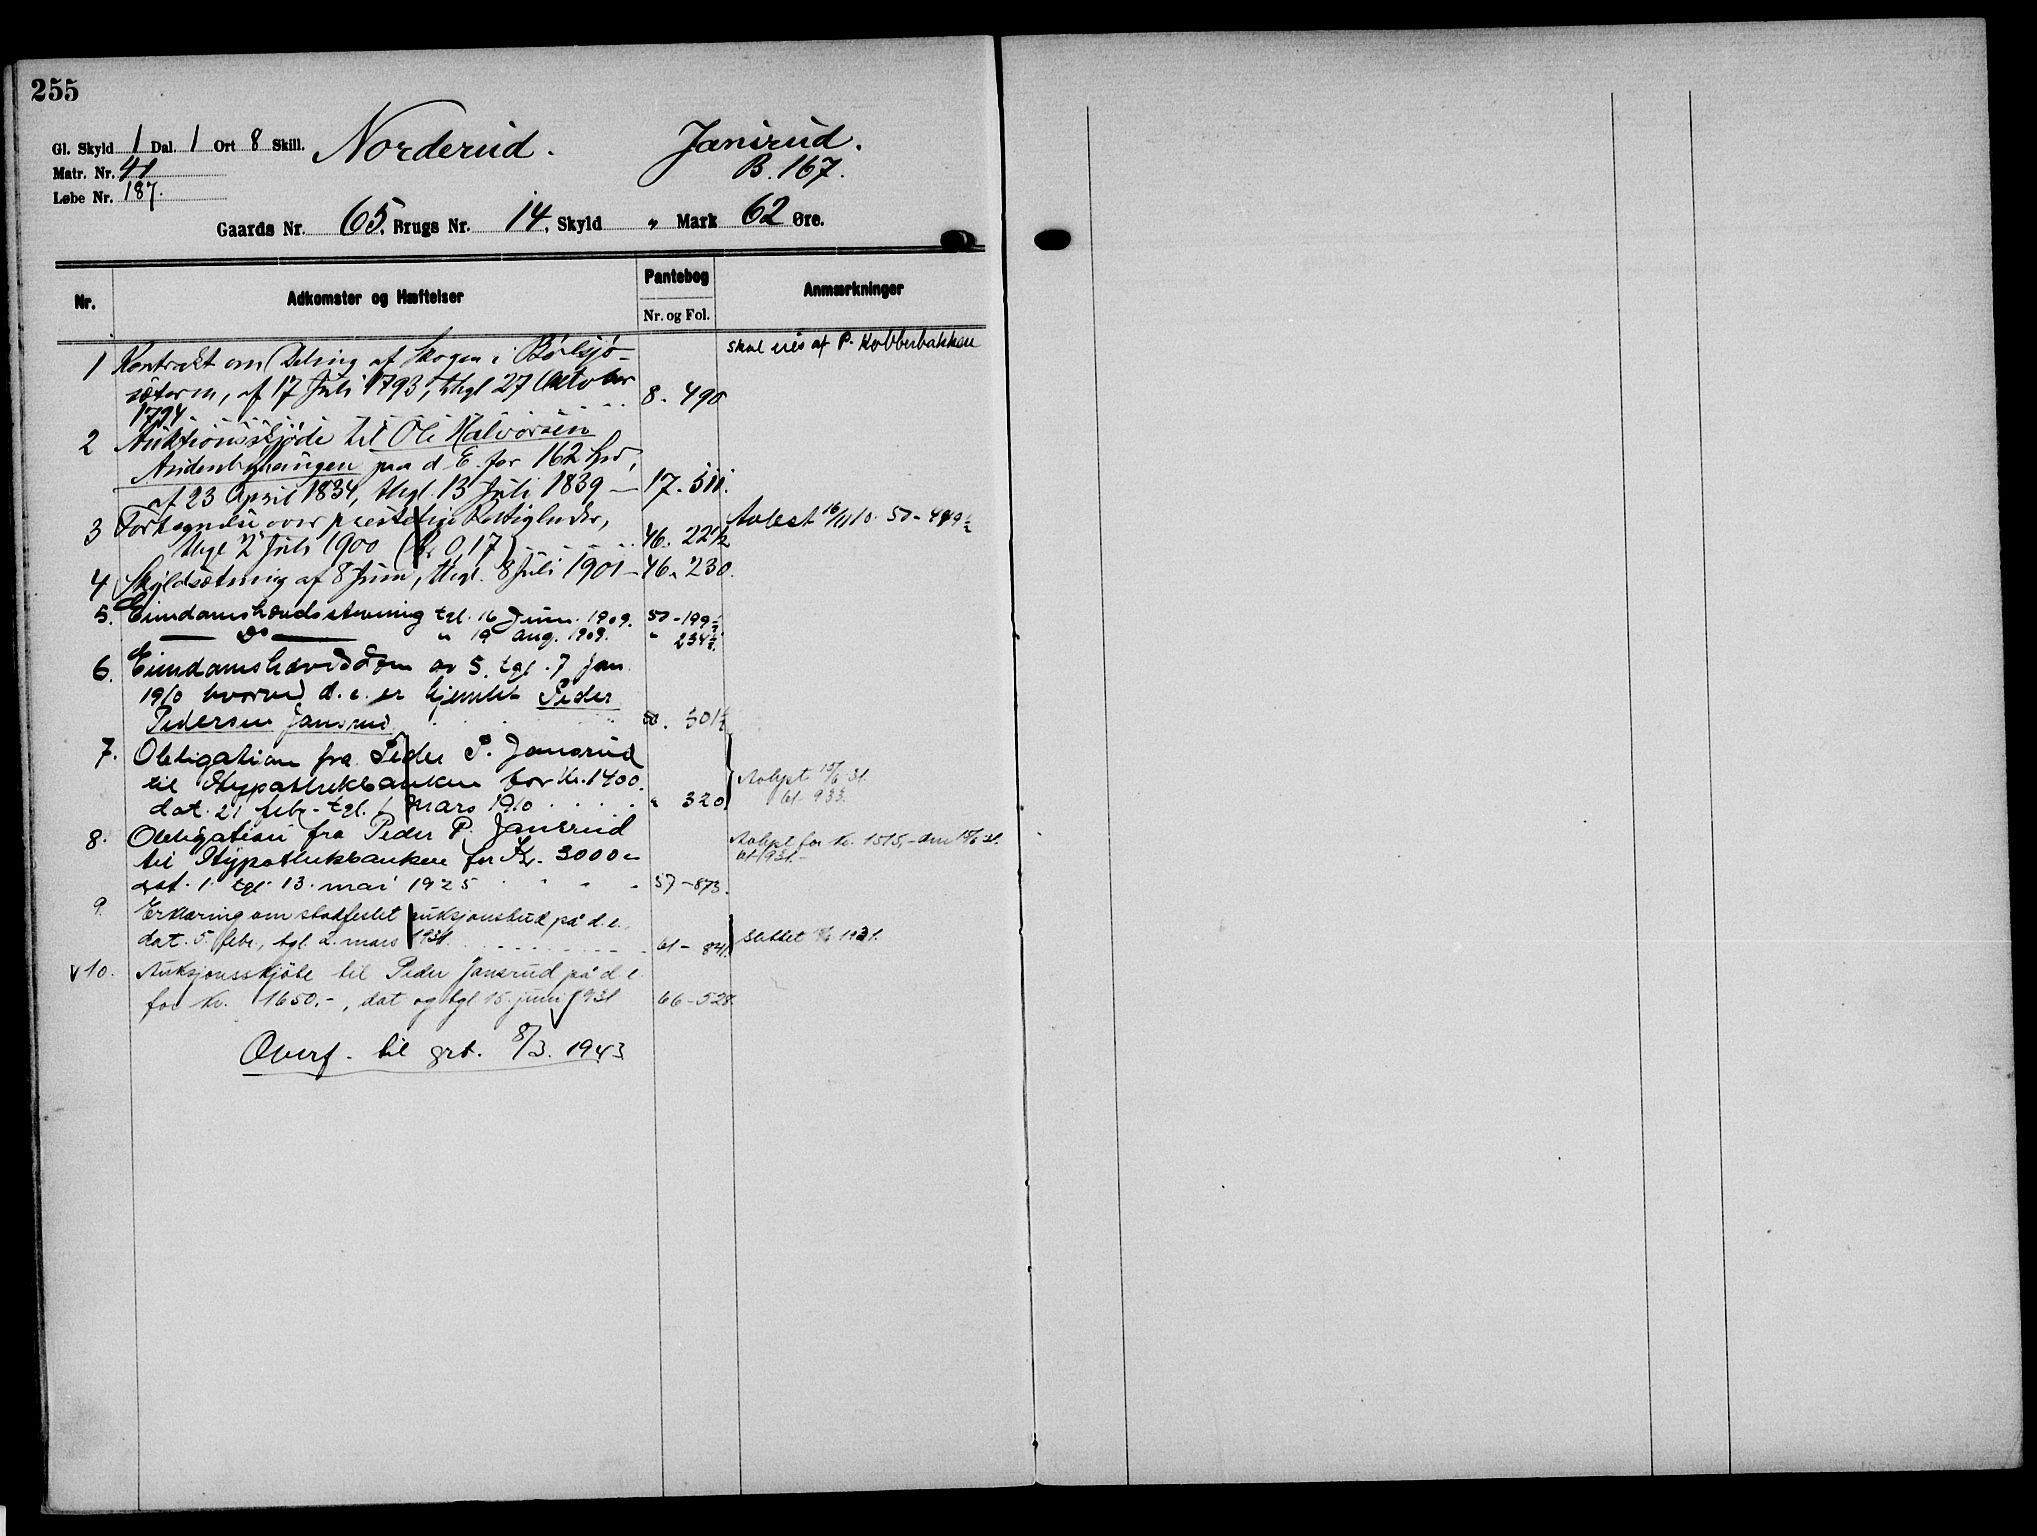 255
Gl. Skyld 1 Dal. 1 Ort 8 Skill. Norderud. Jansrud.
Matr. Nr. 41 B. 167.
Løbe Nr. 187.
Gaards Nr. 65, Brugs Nr. 14, Skyld " Mark 62 Øre.
Nr. Adkomster og Hæftelser Pantebog Anmærkninger
Nr. og Fol.
skal eies af P. Kobberbakken
1 Kontrakt om Deling af Skogen i
sæteren, af 17 Juli 1793, thgl 27 Oktober 8. 490
1794
2 Auktionsskjøde til Ole Halvorsen
paa d. E. for 162 Spd,
af 23 April 1834, thgl. 13 Juli 1839 — 17. 511.
3 Fortegnelse over præstelige Rettigheder, Avlest 16/11 10. 50-449½
thgl 2 Juli 1900 (Kr 0,17) 46. 22½
4 Skyldsætning af 8 Juni, thgl. 8 Juli 1901 — 46. 230.
5. Eiendomshævdsstevning tgl. 16 Juni 1909. 50-199½
Do " 19 aug. 1909. " 234½.
6. Eiendomshævdsdom av 5. tgl. 7 jan.
1910 hvorved d. e. er hjemlet Peder
Pedersen Jansrud 50. 301½
7. Obligation fra Peder P. Jansrud
til Hypothekbanken for Kr. 1400. Avlyst 15/6 31.
dat. 21 febr. tgl. 1 mars 1910 " 320 61-933.
8. Obligation fra Peder P. Jansrud Avlyst for Kr. 1515,- den 15/6 31.
til Hypothekbanken for Kr. 3000- 61-931.-
dat. 1. tgl. 13. mai 1925 57-873.
9. Erklæring om stadfestet auksjonsbud på d. e.
dat. 5. febr., tgl. 2. mars 1931. 61-841. Slettet 15/6 1931.
v 10. Auksjonsskjøte til Peder Jansrud på d. e.
for Kr. 1650.-, dat og tgl 15. juni 1931 66-528.
Overf. til grb. 8/3. 1943